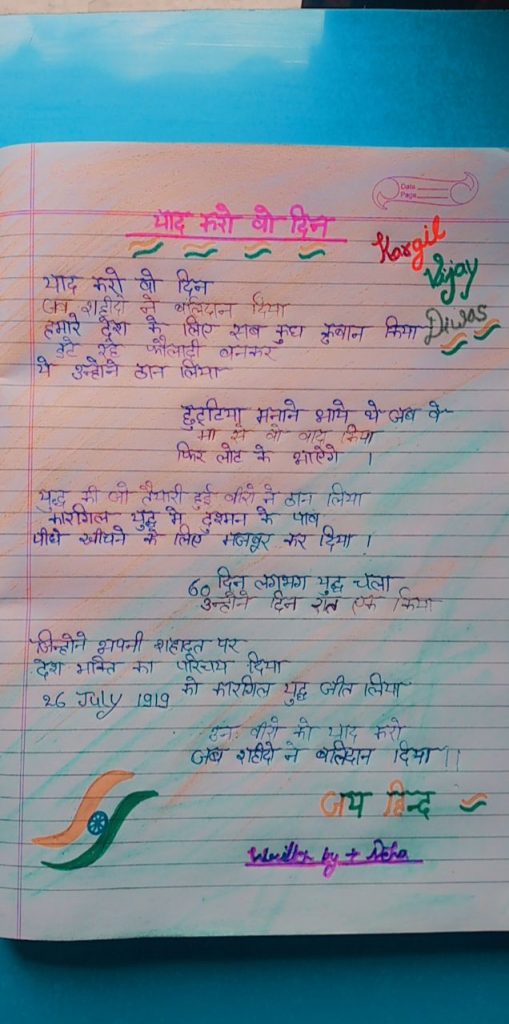 Date
Page
याद करो वो दिन
Kargil
Vijay
Diwas
याद करो वो दिन
जब शहीदो ने बलिदान दिया
हमारे देश के लिए सब कुछ कुर्बान किया
डटे रहे फौलादी बनकर
ये उन्होने ठान लिया
छुट्टिया मनाने आये थे जब वे
मा से वो वादा किया
फिर लोट के आऐंगे ।
युद्ध की जो तैयारी हुई वीरो ने ठान लिया
कारगिल युद्ध मे दुश्मन के पाव
पीछे खीचने के लिए मजबूर कर दिया ।
60 दिन लगभग युद्ध चला
उन्होने दिन रात एक किया
जिन्होने अपनी शहादत पर
देश भक्ति का परिचय दिया
26 July 1919 को कारगिल युद्ध जीत लिया
इन वीरो को याद करो
जब शहीदो ने बलिदान दिया ।।
जय हिन्द
by Neha